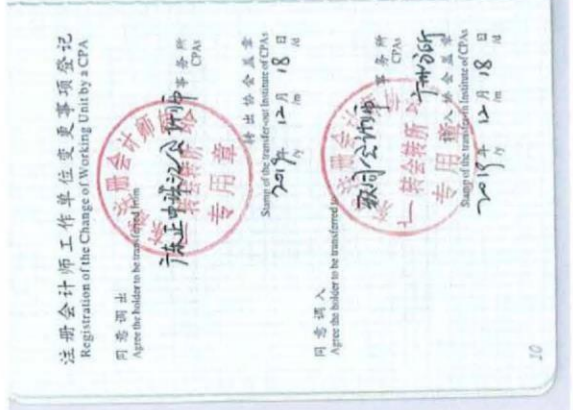 注册会计师工作单位变更事项登记
Registration of the Change of Working Unit by a CPA
同意调出
Agree the holder to be transferred from
广东正中珠江会计师事务所
CPAs
转会转所
专用章
转出协会盖章
Stamp of the transfer-out Institute of CPAs
2019年12月18日
/y /m /d
同意调入
Agree the holder to be transferred to
会计师事务所
CPAs
广州分所
转会转所
专用章
转入协会盖章
Stamp of the transfer-in Institute of CPAs
2019年12月18日
/y /m /d
10